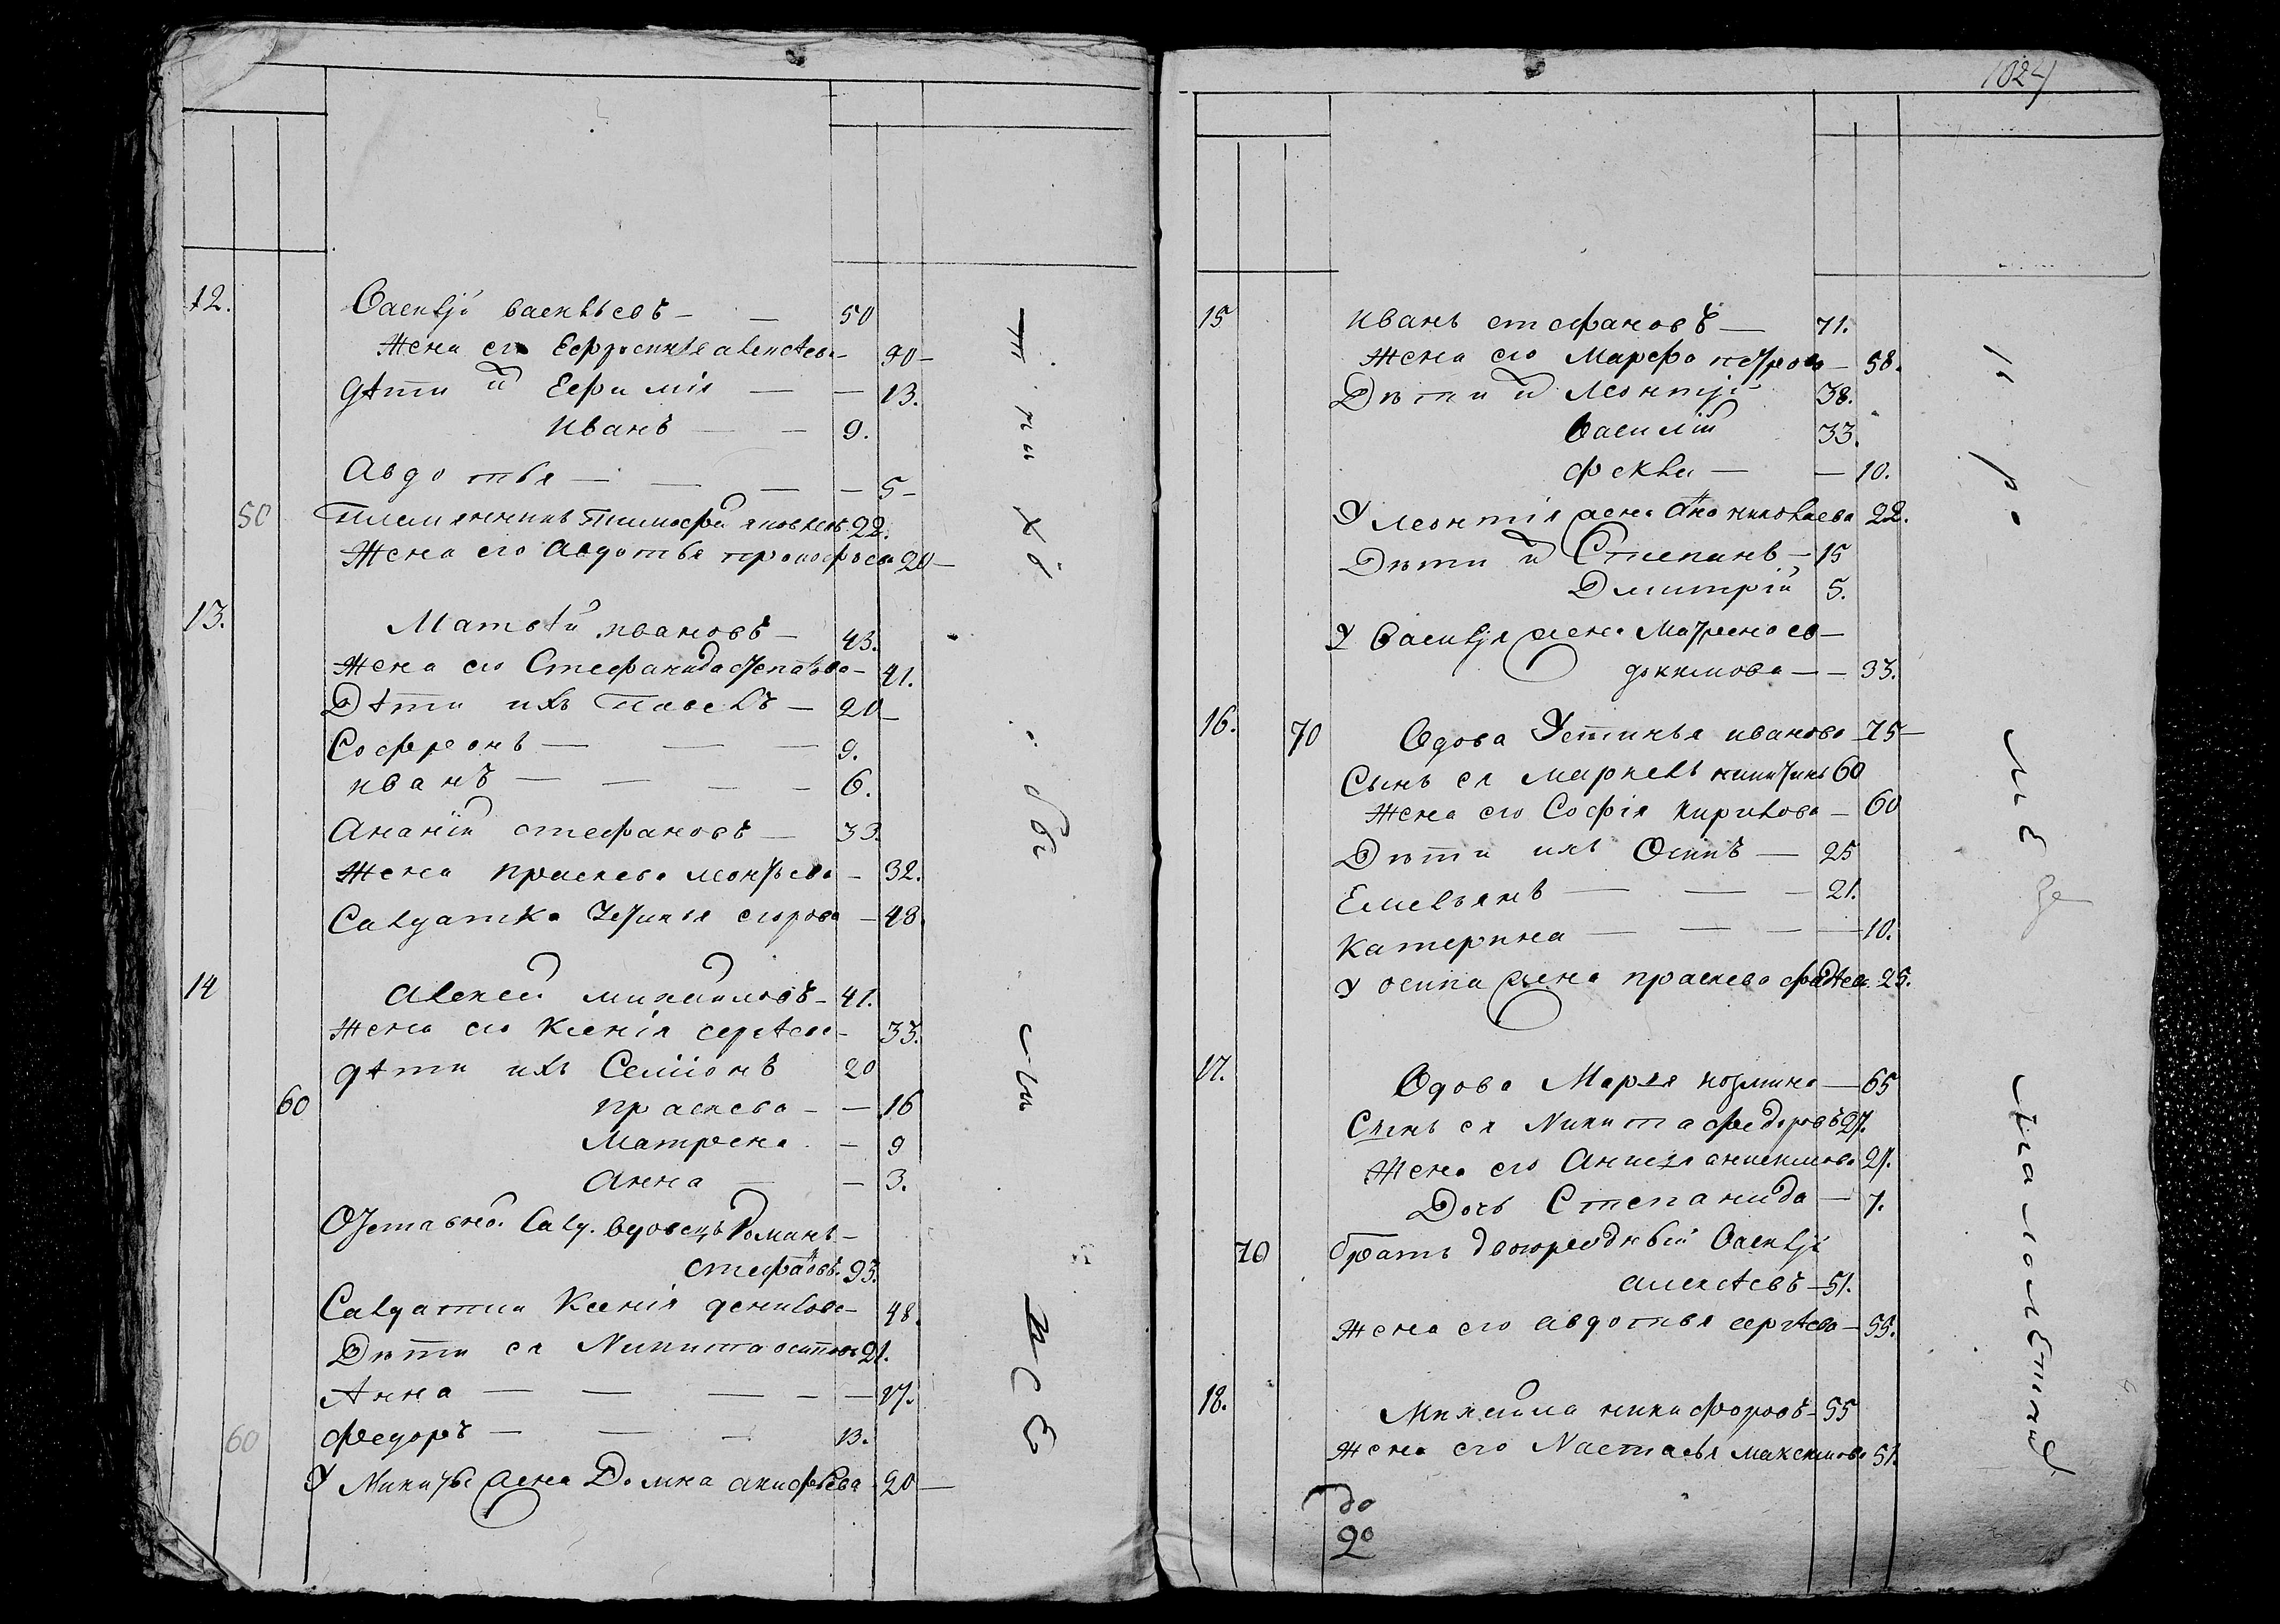 12. Василїй васильевъ — 50
Жена его Ефросинья алексѣева — 40
дѣти их Ефимия — 13.
иванъ — 9.
Авдотья — 5
50 племянникъ тимофей яковлевъ 22.
Жена его Авдотья прокофьева 20
13. Матвѣй ивановъ — 43.
Жена его Стефанида — 41.
Дѣти ихъ павелъ — 20
Софронъ — 9.
иванъ — 6.
Ананїй стефановъ — 33
Жена праскева леонтьева — 32.
Салдатка Устинья егорова — 48.
14 Алексей михайловъ — 41.
Жена его Ксенїя сергѣева — 33.
дѣти ихъ Семїонъ 20
60 праскева — 16
Матрена — 9
Анна — 3.
Отставной Салд. вдовецъ Романъ
стефановъ. 93.
Салдатка Ксенїя данилова — 48.
Дѣти ея Никита осиповъ 21.
Анна — 17.
60 Федоръ — 13.
У Никиты жена Домна акифьева 20
1024
15 иванъ стефановъ — 71.
Жена его Марфа петрова — 58.
Дѣти их Леонтїй 38.
Василїй 33.
фекла — 10.
У леонтїя жена Анна николаева 22.
Дѣти их Степанъ — 15
Дмитрїй 5.
У Василїя жена Матрена ев—
докимова — 33.
16. 70 Вдова Устинья иванова 75
Сынъ ея маркелъ никитинъ 60
Жена его Софїя кирилова — 60
Дѣти ихъ Осипъ — 25
Емельянъ — 21.
Катерина — 10.
У осипа жена праскева фадѣева 25.
17. Вдова Марья козмина — 65
Сынъ ея Никита федоровъ 27.
Жена его Анисья анисимова 27.
Дочь Степанида — 7.
70 братъ двоюродный Василїй
алексѣевъ — 51.
Жена его авдотья сергѣева — 55.
18. Михайла никифоровъ — 55
Жена его Настасья максимова 51.